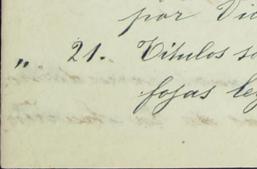 por Vic
„ 21. Títulos s
fojas leg